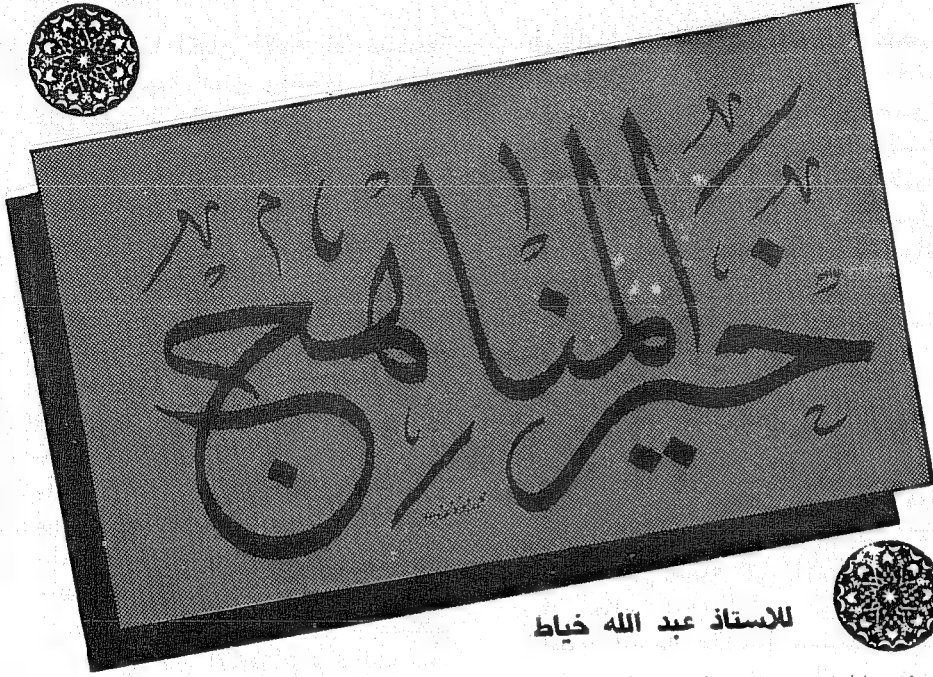 خير المناهج
للاستاذ عبد الله خياط